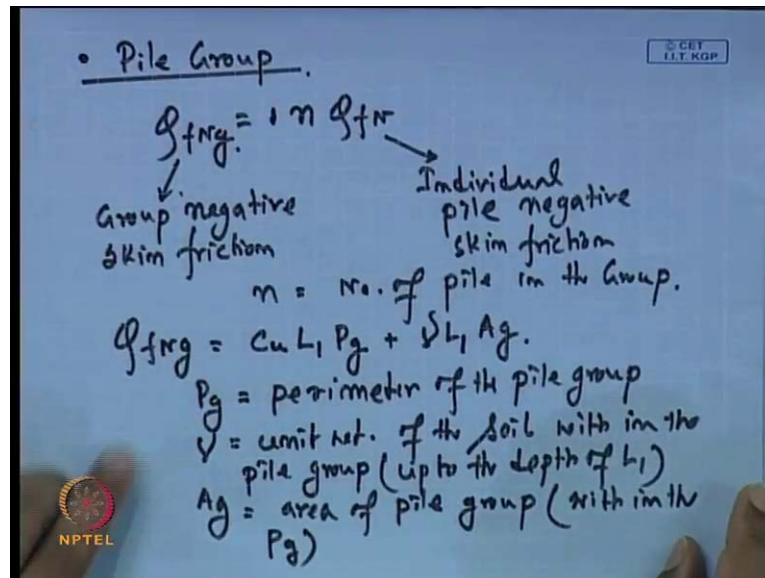 • Pile Group.
© CET
I.I.T. KGP
QfNg = n QfN
Group negative skin friction
Individual pile negative skin friction
n = No. of pile in the Group.
QfNg = Cu L1 Pg + γ L1 Ag.
Pg = perimeter of the pile group
γ = unit wt. of the soil with in the
pile group (up to the depth of L1)
Ag = area of pile group (with in the
Pg)
NPTEL